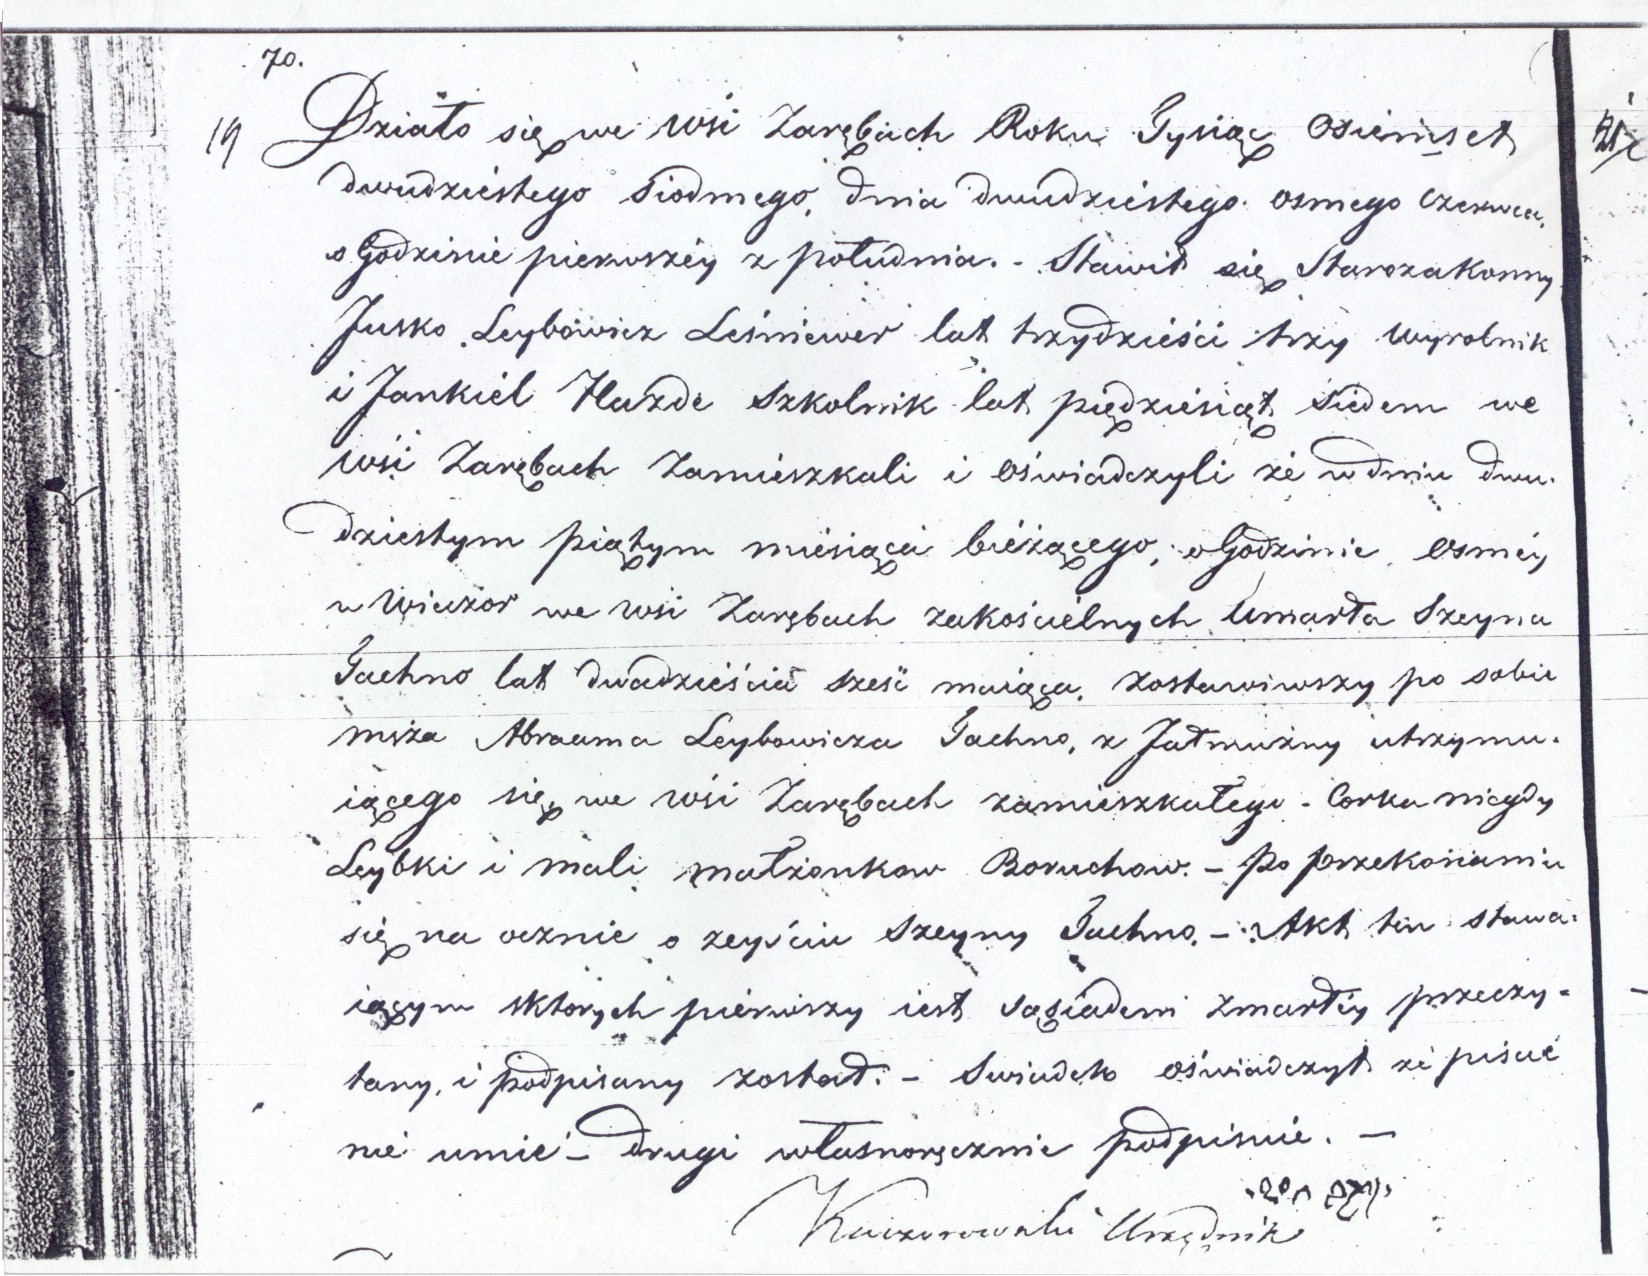 70.
19 Działo się we wsi Zarębach Roku Tysiąc osiemset
dwudziestego siodmego, dnia dwudziestego osmego czerwca,
o Godzinie pierwszéy z południa. - Stawił się Starozakonny
Jusko Leybowicz Leśniewer lat trzydzieści trzy wyrobnik
i Jankiel Hazde szkolnik lat piędziesiąt siedem we
wsi Zarębach zamieszkali i oświadczyli że w dniu dwu-
dziestym piątym miesiąca bieżącego, o Godzinie osméy
w wieczor we wsi Zarębach zakościelnych umarła Szeyna
Jachno lat dwadzieścia sześć maiąca, zostawiwszy po sobie
męża Abraama Leybowicza Jachno, z Jałmużny utrzymu-
iącego się we wsi Zarębach zamieszkałego - Corka niegdy
Leybki i Mali małżonkow Boruchow. - Po przekonaniu
się na ocznie o zeyściu Szeyny Jachno. - Akt ten stawa-
iącym zktorych pierwszy iest sąsiadem zmarłéy przeczy-
tany, i podpisany został. - Swiadek oświadczył że pisać
nie umie - drugi własnoręcznie podpisuie. -
Urzędnik